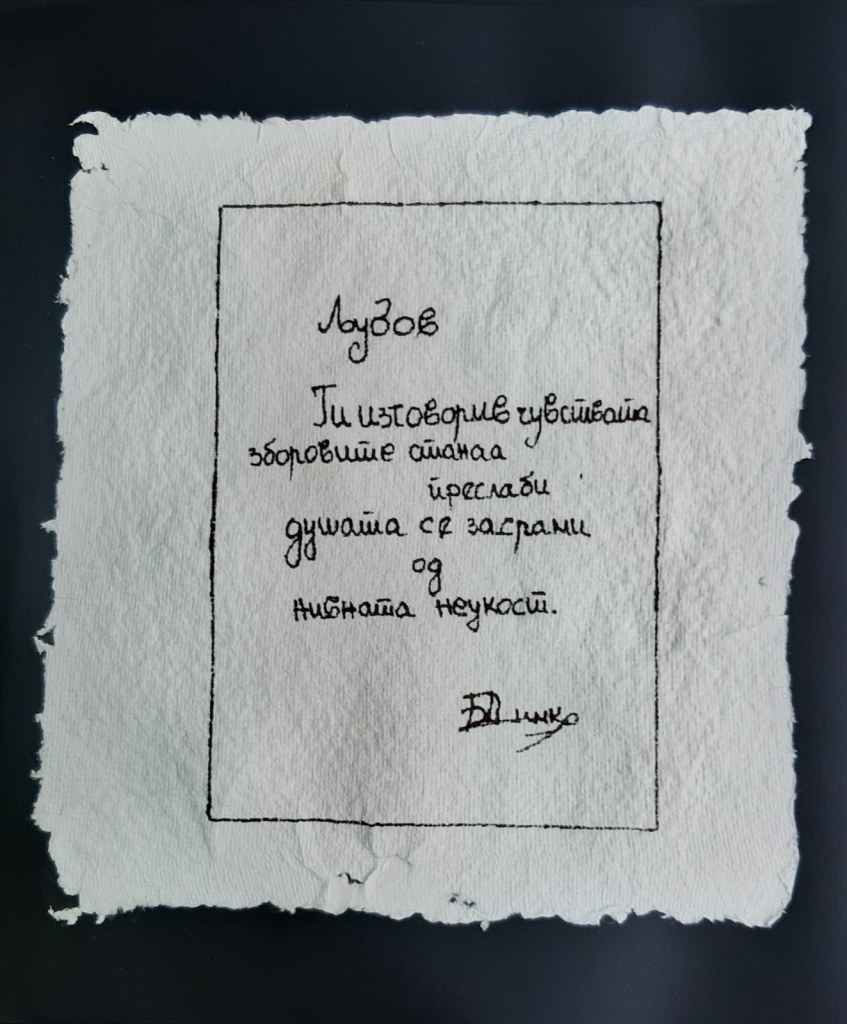 Љубов
Ги изговорив чувствата
зборовите станаа
преслаби
душата се засрами
од
нивната неукост.